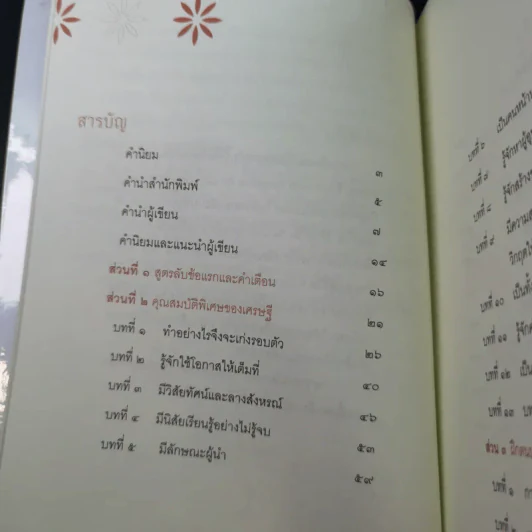 สารบัญ
คำนิยม ๓
คำนำสำนักพิมพ์ ๕
คำนำผู้เขียน ๗
คำนิยมและแนะนำผู้เขียน ๑๔
ส่วนที่ ๑ สูตรลับข้อแรกและคำเตือน ๑๖
ส่วนที่ ๒ คุณสมบัติพิเศษของเศรษฐี ๒๑
บทที่ ๑ ทำอย่างไรจึงจะเก่งรอบตัว ๒๖
บทที่ ๒ รู้จักใช้โอกาสให้เต็มที่ ๔๐
บทที่ ๓ มีวิสัยทัศน์และลางสังหรณ์ ๔๖
บทที่ ๔ มีนิสัยเรียนรู้อย่างไม่รู้จบ ๕๓
บทที่ ๕ มีลักษณะผู้นำ ๕๙
บทที่ ๖
บทที่ ๗
บทที่ ๘
บทที่ ๙
บทที่ ๑๐
บทที่ ๑๑
บทที่ ๑๒
บทที่ ๑๓
บทที่ ๑
บทที่ ๒